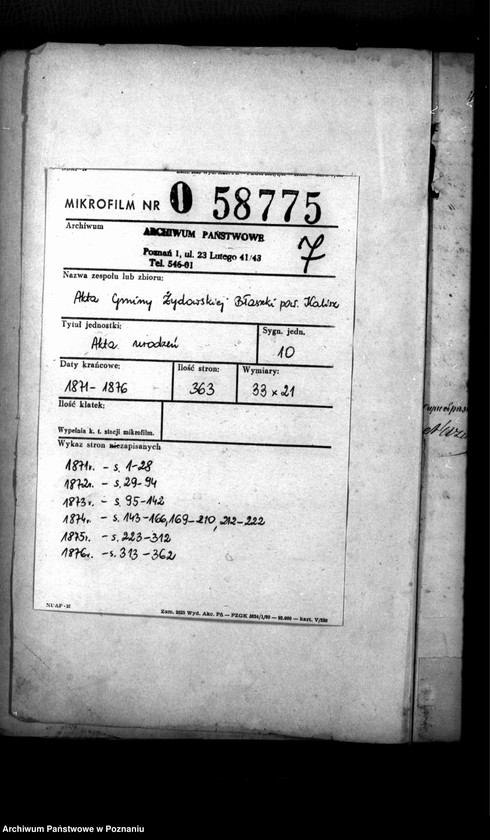 MIKROFILM NR O 58775
Archiwum
ARCHIWUM PAŃSTWOWE
Poznań 1, ul. 23 Lutego 41/43
Tel. 546-01
7
Nazwa zespołu lub zbioru:
Akta Gminy Żydowskiej Błaszki pow. Kalisz
Tytuł jednostki:
Akta urodzeń
Sygn. jedn.
10
Daty krańcowe:
1871-1876
Ilość stron:
363
Wymiary:
33 x 21
Ilość klatek:
Wypełnia k. t. stacji mikrofilm.
Wykaz stron niezapisanych
1871r. - s. 1-28
1872r. - s. 29-94
1873r. - s. 95-142
1874r. - s. 143-166, 169-210, 212-222
1875r. - s. 223-312
1876r. - s. 313-362
Zam. Wyd. Akc. Pń - PZGK
Archiwum Państwowe w Poznaniu